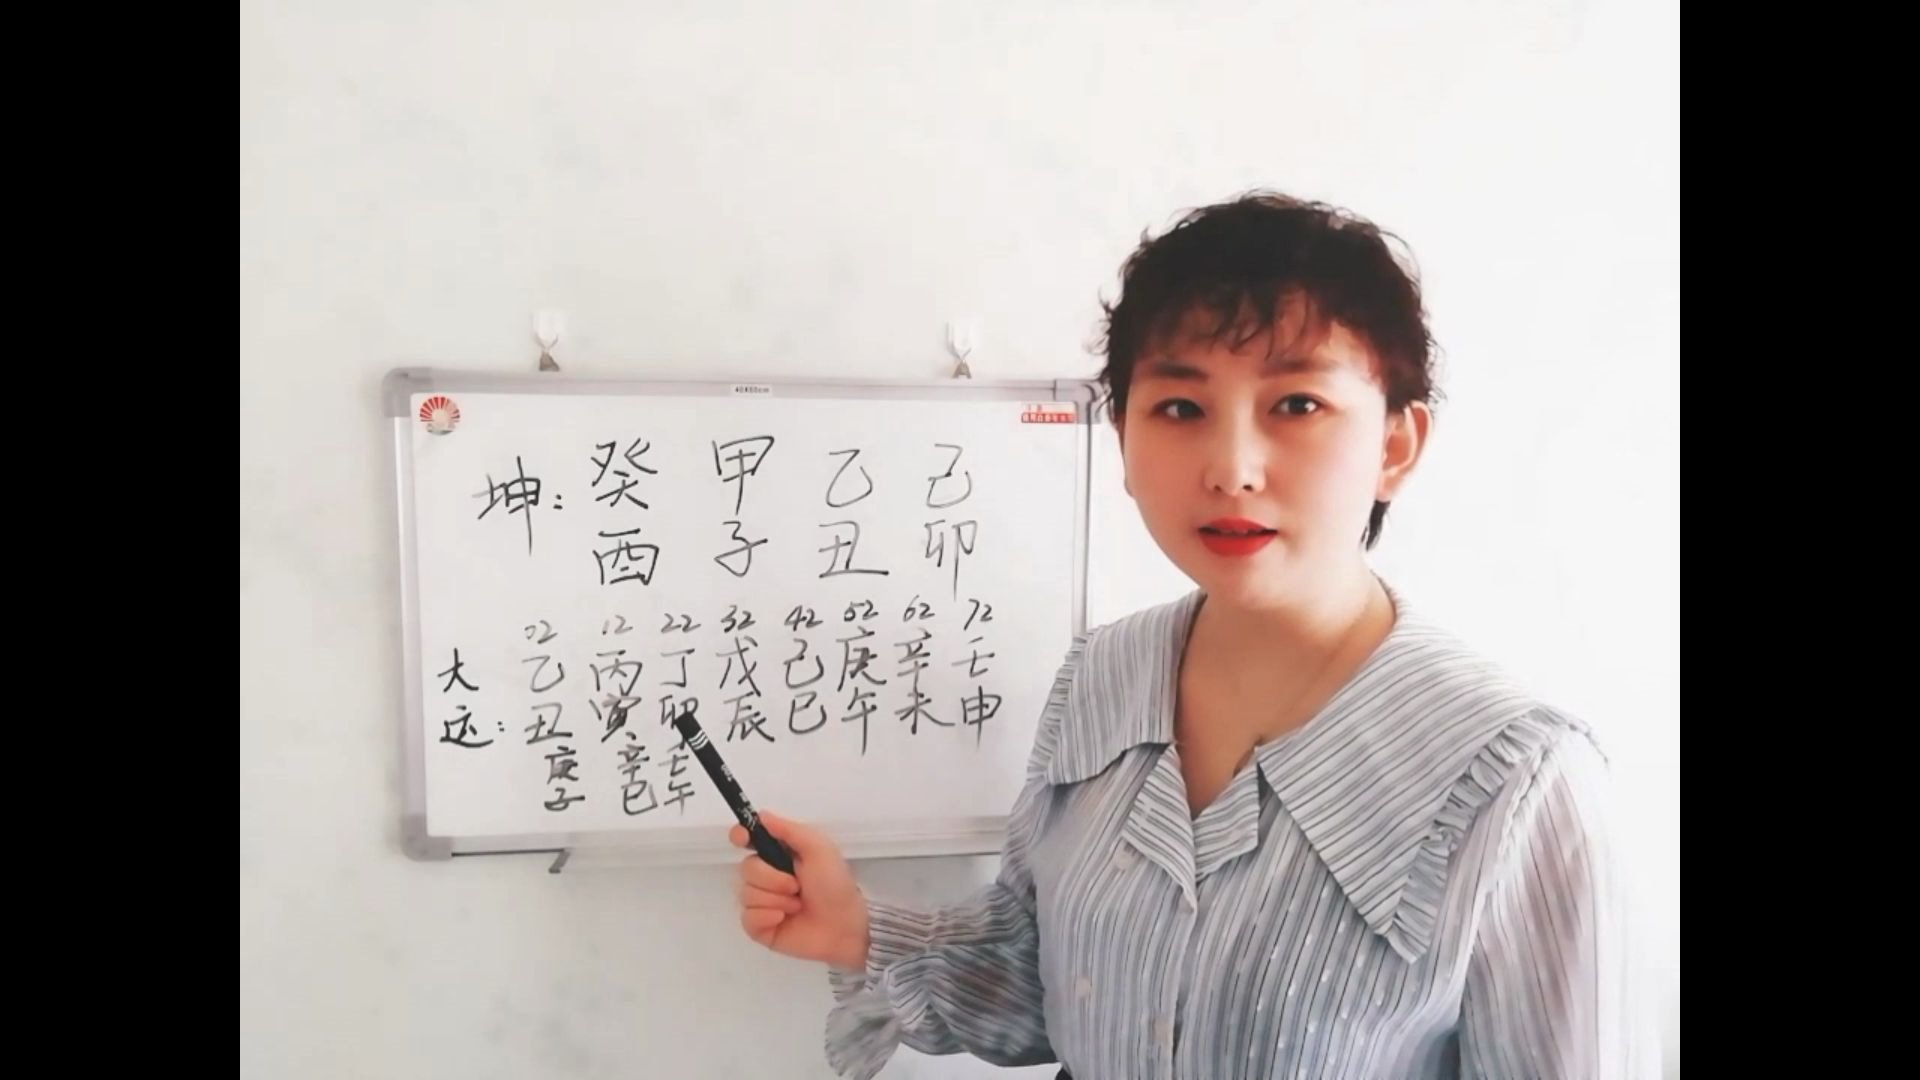 40X60cm
坤: 癸 甲 乙 己
酉 子 丑 卯
02 12 22 32 42 52 62 72
大 乙 丙 丁 戊 己 庚 辛 壬
运: 丑 寅 卯 辰 巳 午 未 申
庚 辛 壬
子 巳 午